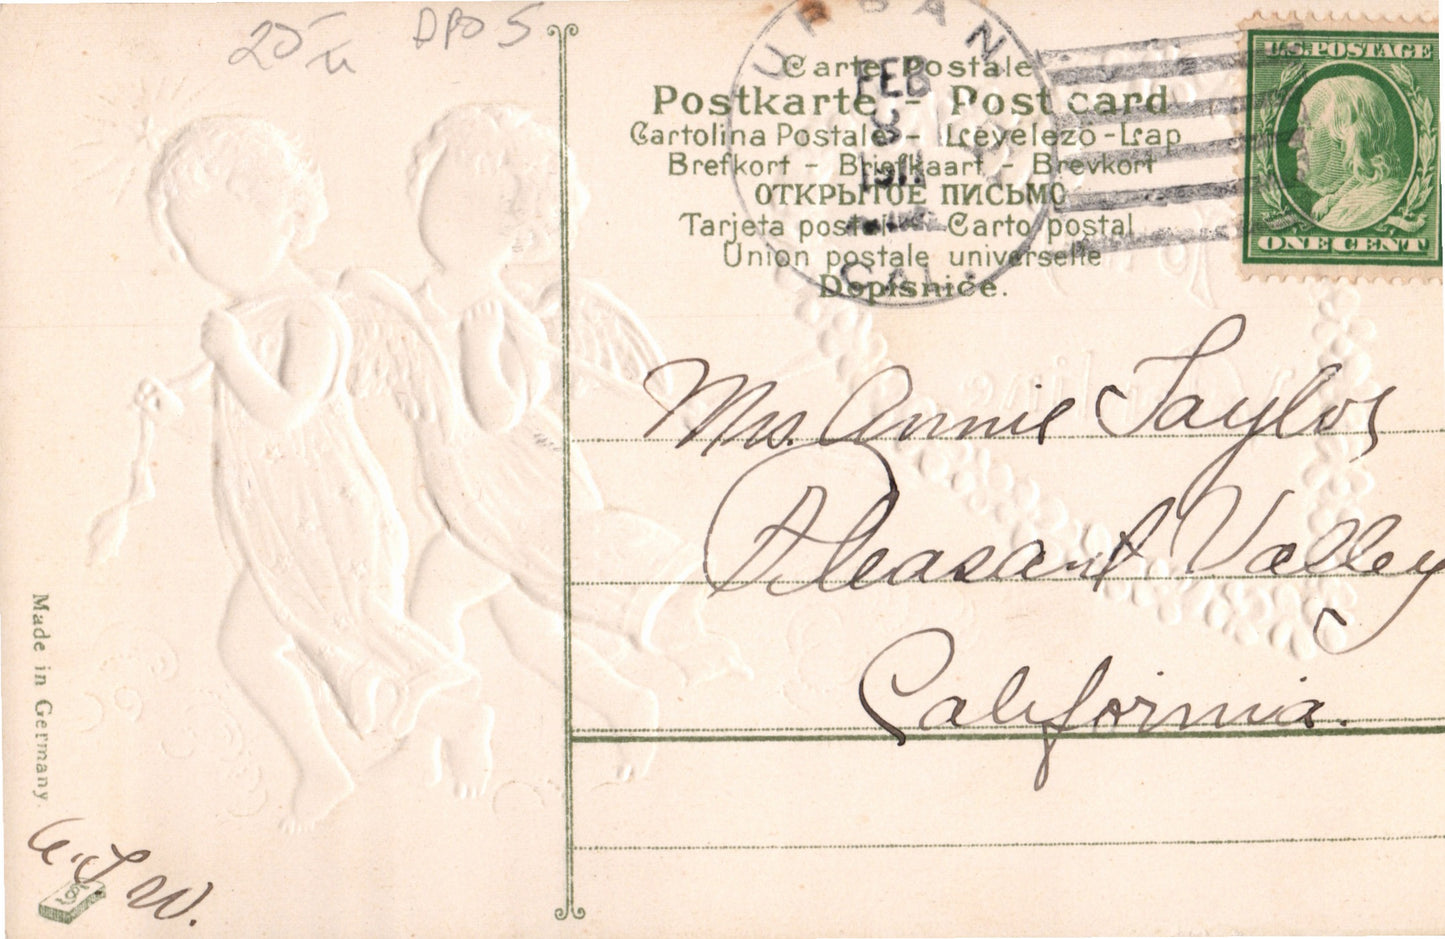 25
DPO 5
URBAN
FEB
3
CAL.
U.S. POSTAGE
ONE CENT
Carte Postale
Postkarte - Post card
Cartolina Postale - Levelezö-Lap
Brefkort - Briefkaart - Brevkort
ОТКРЫТОЕ ПИСЬМО
Tarjeta postal - Carto postal
Union postale universelle
Dopisnice.
Mrs. Annie Taylor
Pleasant Valley
California.
Made in Germany.